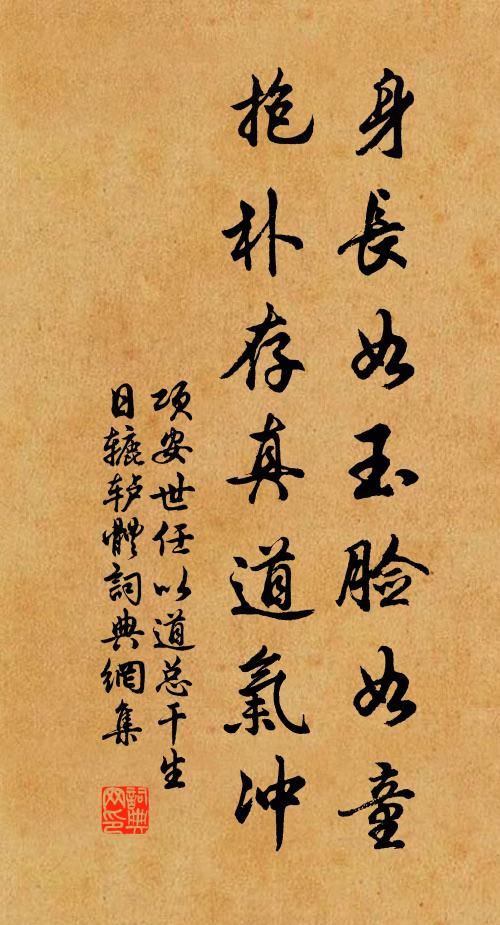 身長如玉脸如童
抱朴存真道氣冲
项安世任以道总干生
日辘轳體詞典網集
詞典网印